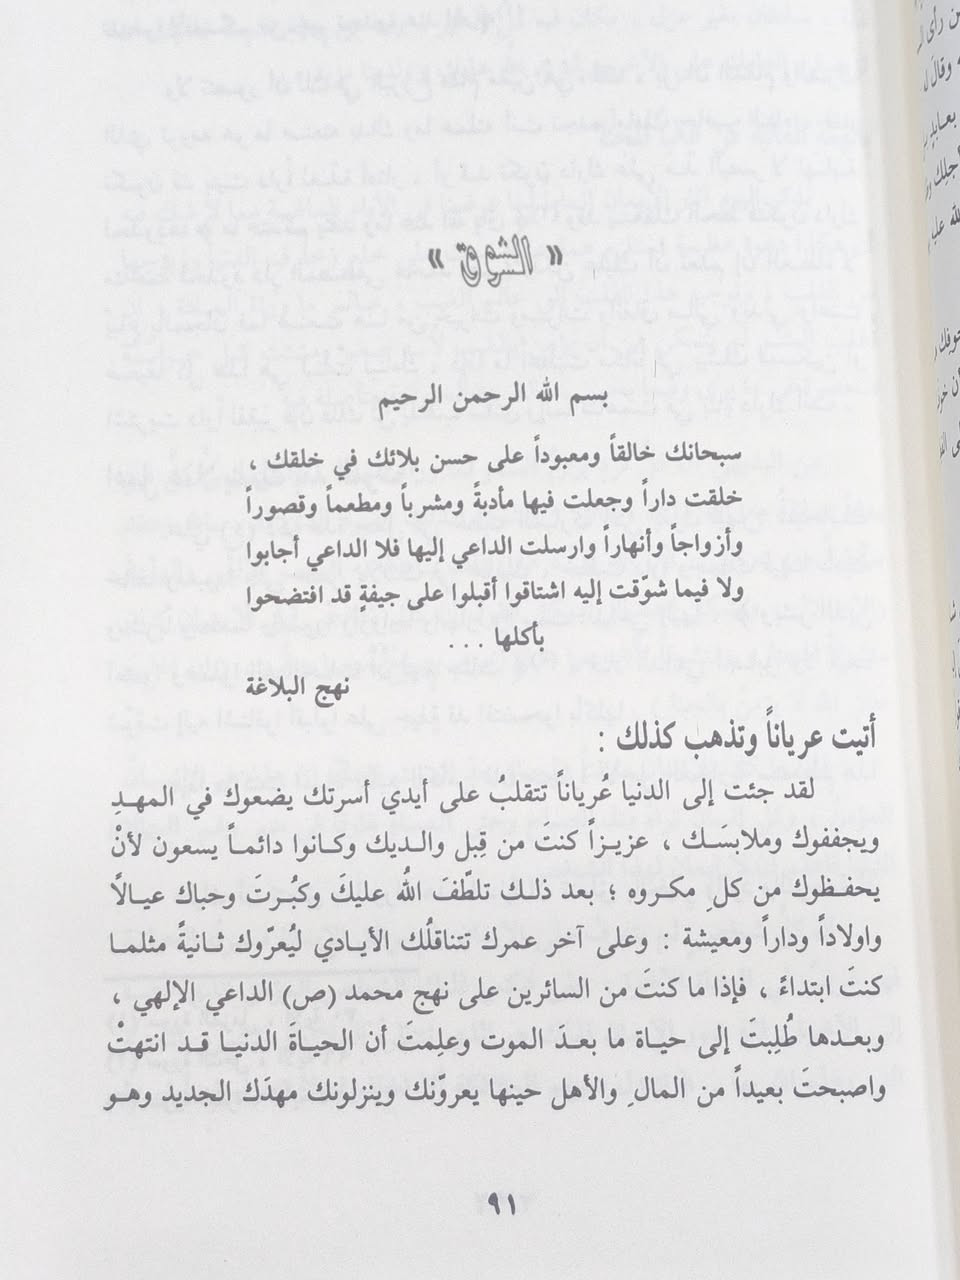 « الشوق »
بسم الله الرحمن الرحيم
سبحانك خالقاً ومعبوداً على حسن بلائك في خلقك ،
خلقت داراً وجعلت فيها مأدبةً ومشرباً ومطعماً وقصوراً
وأزواجاً وأنهاراً وارسلت الداعي إليها فلا الداعي أجابوا
ولا فيما شوّقت إليه اشتاقوا أقبلوا على جيفةٍ قد افتضحوا
بأكلها . . .
نهج البلاغة
أتيت عرياناً وتذهب كذلك :
لقد جئت إلى الدنيا عُرياناً تتقلبُ على أيدي أسرتك يضعوك في المهدِ
ويجففوك وملابسَك ، عزيزاً كنتَ من قِبل والديك وكانوا دائماً يسعون لأنْ
يحفظوك من كلِ مكروه ؛ بعد ذلك تلطَّفَ اللهُ عليكَ وكبُرتَ وحباك عيالاً
واولاداً وداراً ومعيشة : وعلى آخر عمرك تتناقلُك الأيادي ليُعرّوك ثانيةً مثلما
كنتَ ابتداءً ، فإذا ما كنتَ من السائرين على نهج محمد (ص) الداعي الإلهي ،
وبعدها طُلِبتَ إلى حياة ما بعدَ الموت وعلِمتَ أن الحياةَ الدنيا قد انتهتْ
واصبحتَ بعيداً من المالِ والأهل حينها يعروّنك وينزلونك مهدَك الجديد وهو
٩١